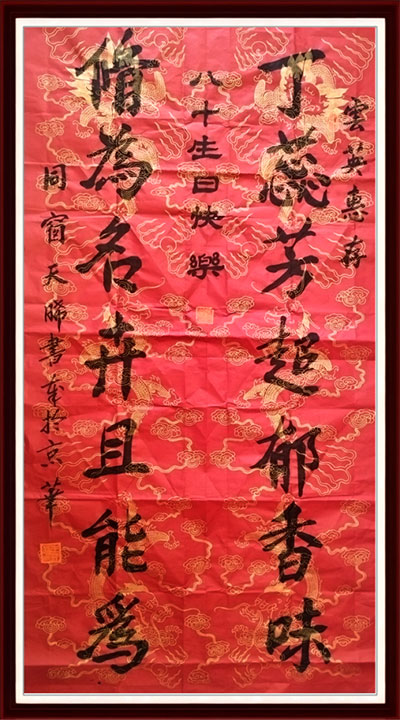 雲英惠存
丁蕊芳超郁香味
八十生日快樂
脩為名卉且能爲
同宿天睎書奎於京華